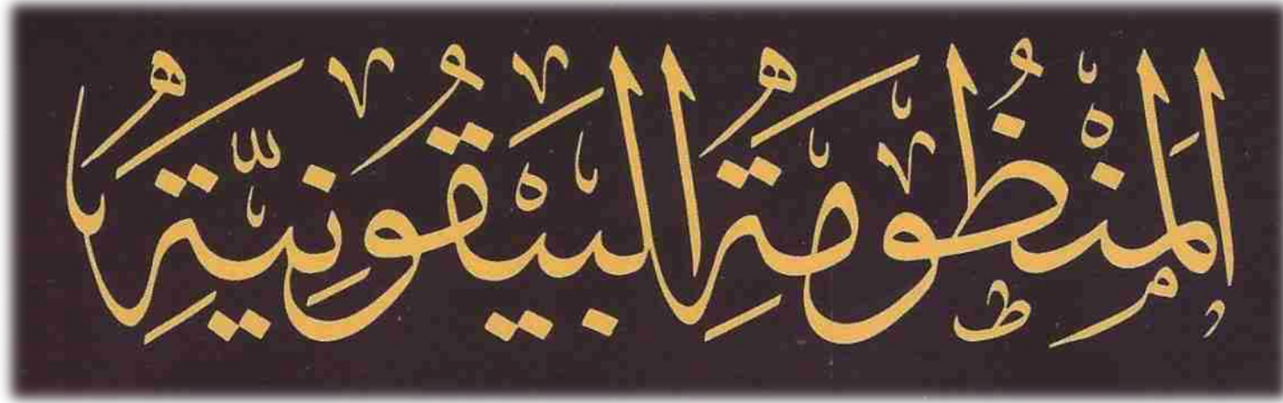 المَنْظُومَةِ البَيْقُونِيَّةِ